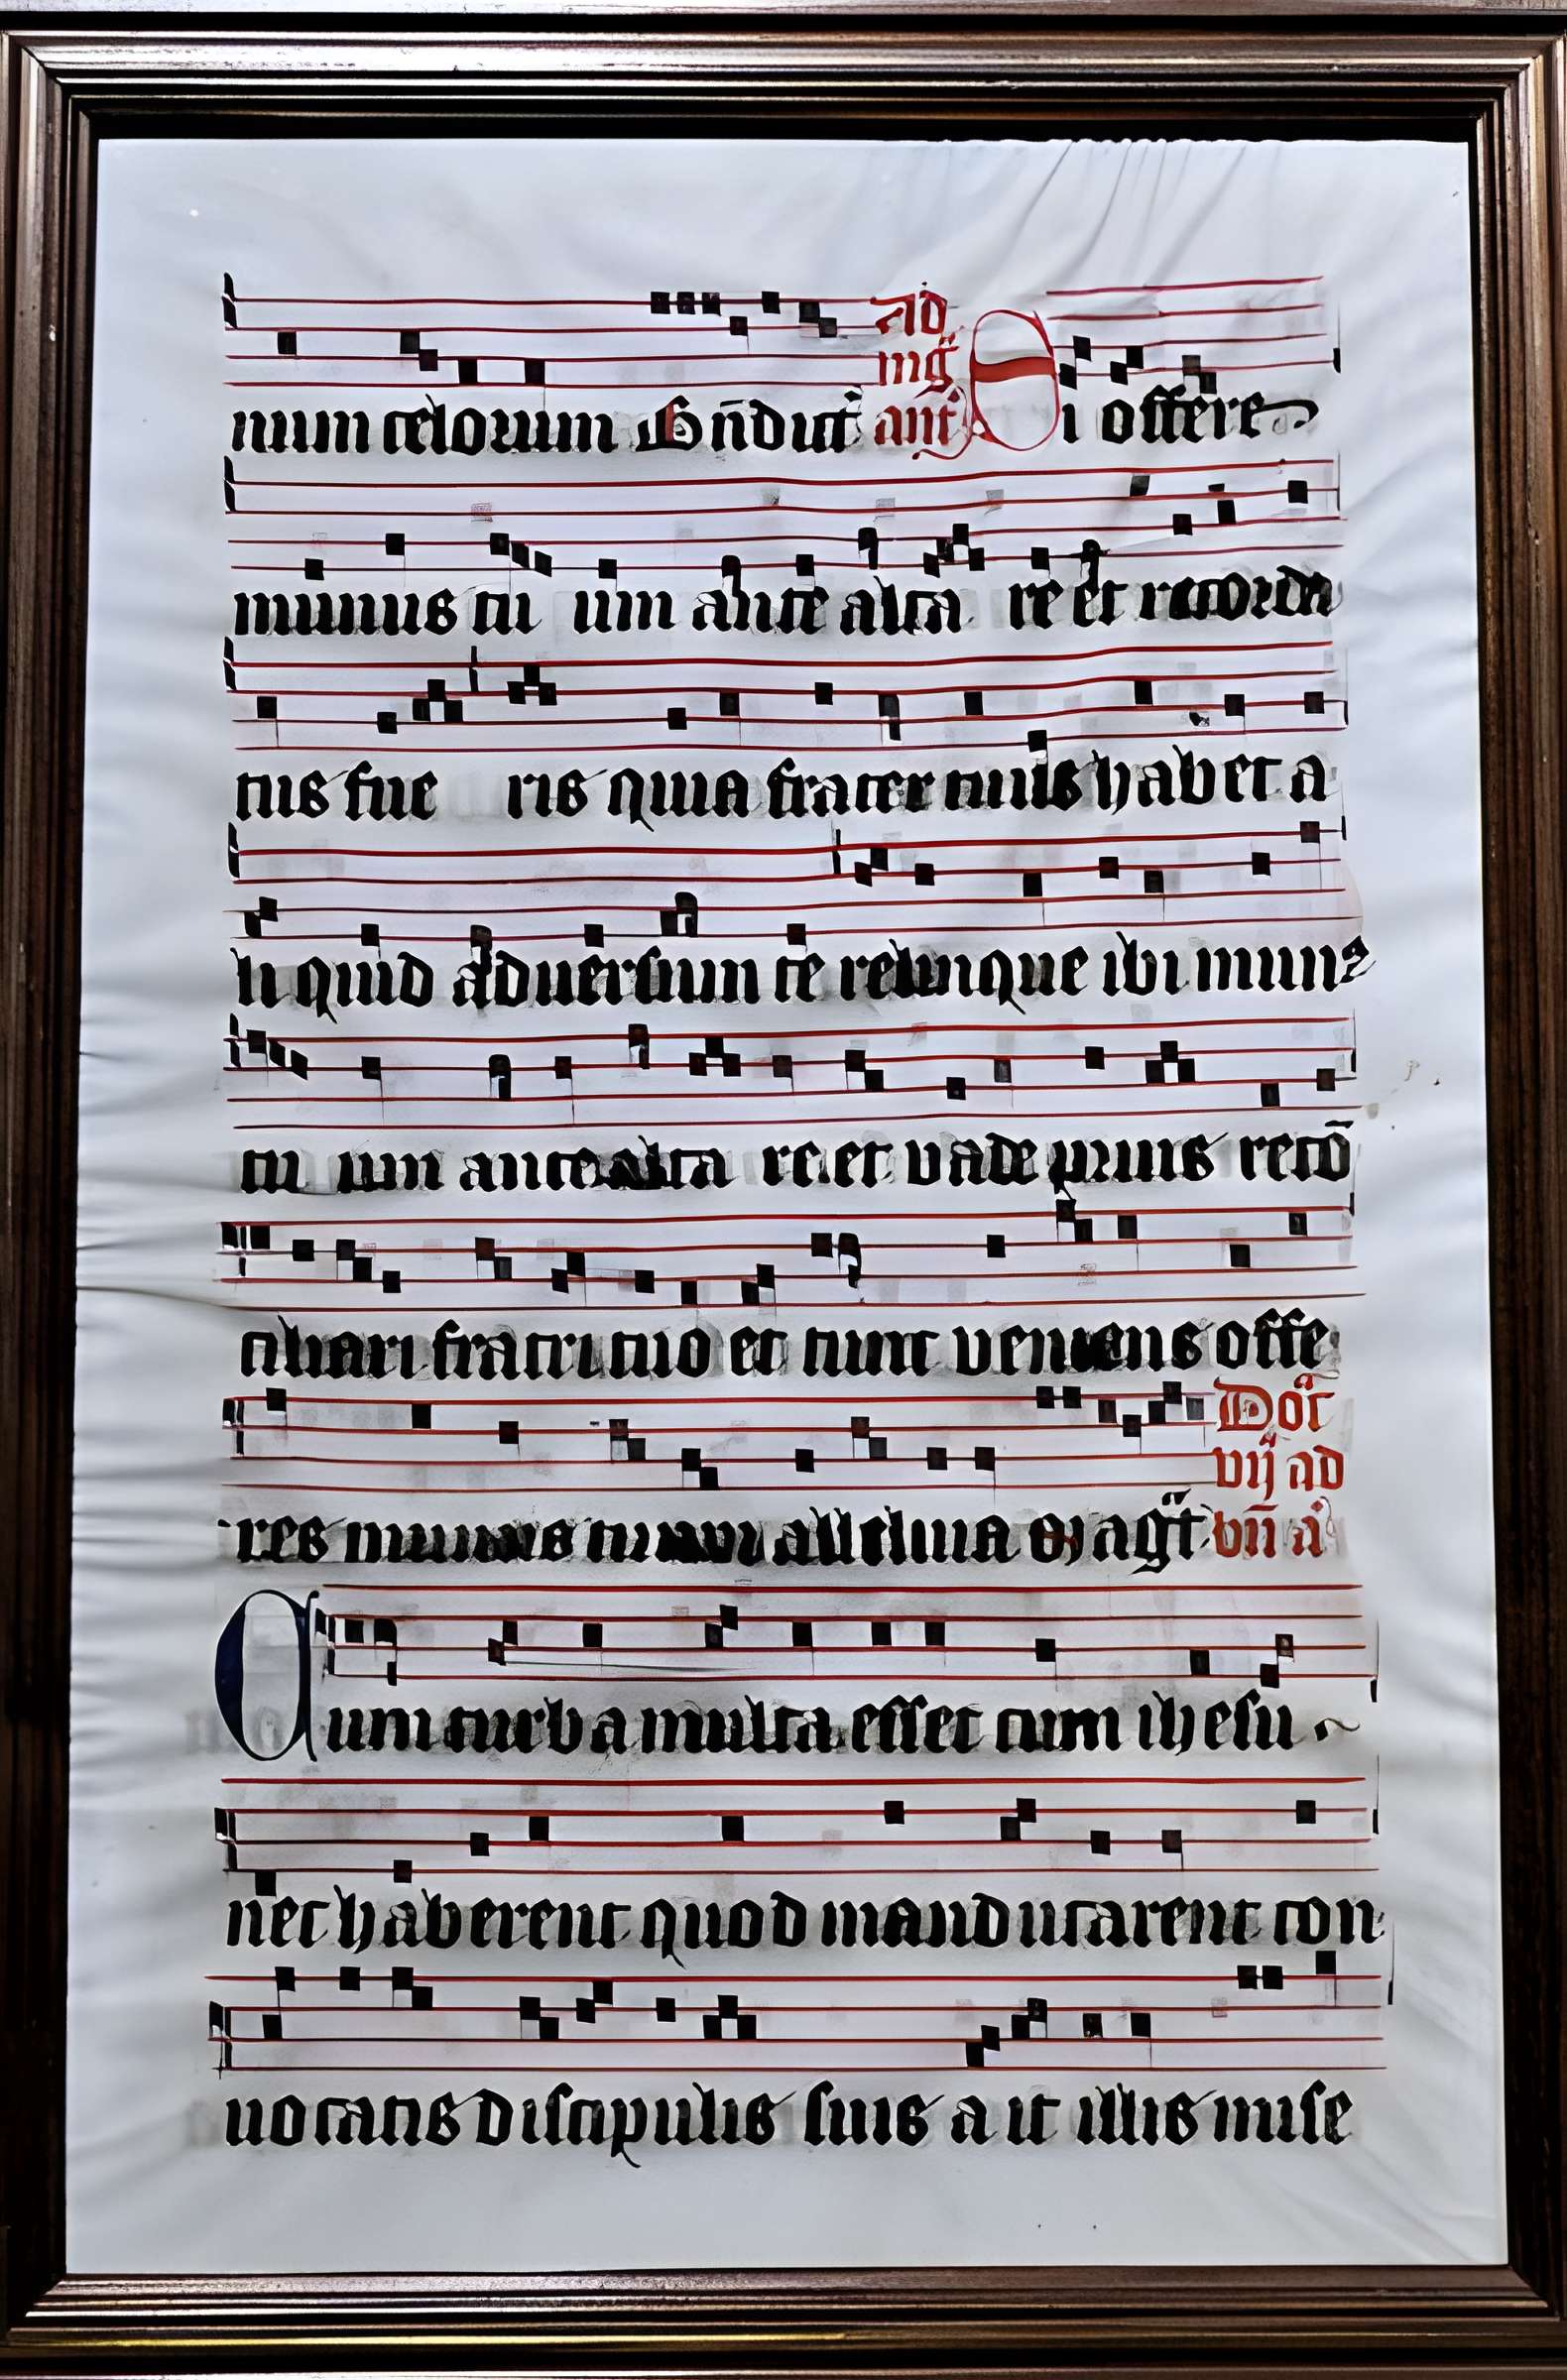 num celorum Bñdict̃ ad mg̃ ant̃ Si offere
munus tu um ante alta re et recorda
tus fue ris quia frater tuus habet a
li quid adversum te relinque ibi mun
tu um ante alta re et vade prius recō
ciliari fratri tuo et tunc veniens offe
res munus tuum alleluia Mag̃t Dot̃ vij ad bñ a
Cum turba multa esset cum ihesu
nec haberent quod manducarent con
vocatis discipulis suis a it illis mise